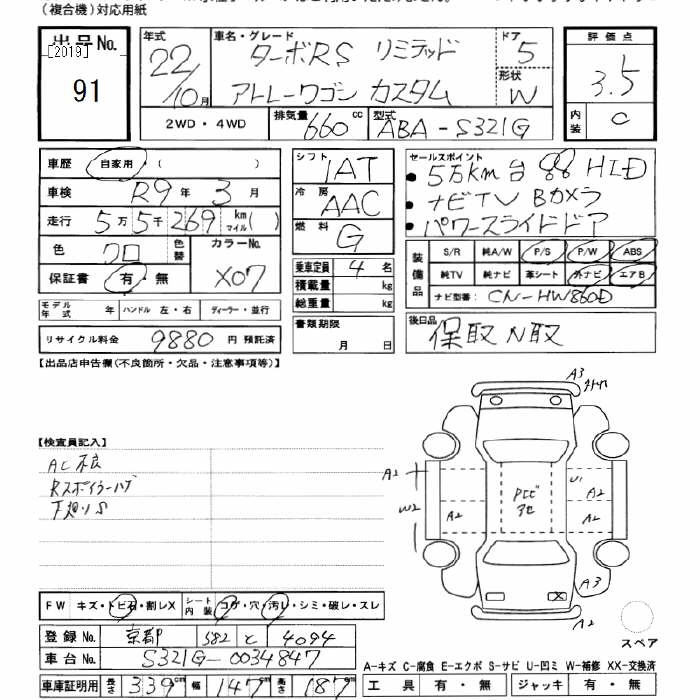 （複合機）対応用紙
出品No.
[2019]
91
年式
22/10月
車名・グレード
ターボRS リミテッド
アトレーワゴン カスタム
ドア
5
形状
W
評価点
3.5
内装
C
2WD・4WD
排気量 660cc
型式 ABA-S321G
車歴 自家用（ ）
車検 R9年3月
走行 5万5千269km マイル( )
色 クロ
色替
カラーNo.
X07
保証書 有・無
シフト IAT
冷房 AAC
燃料 G
乗車定員 4名
積載量 kg
総重量 kg
書類期限
月 日
セールスポイント
• 5万km台 HID
• ナビTV Bカメラ
• パワースライドドア
装備品
S/R 純A/W P/S P/W ABS
純TV 純ナビ 革シート 外ナビ エアB
ナビ型番： CN-HW860D
モデル年式 年 ハンドル 左・右 ディーラー・並行
リサイクル料金 9880 円 預託済
後日品
保取N取
【出品店申告欄（不良箇所・欠品・注意事項等）】
【検査員記入】
AC不良
Rスポイラーハゲ
下廻りS
A3
A2
W2
A2
U1
A2
A2
A3
X
A2
スペア
FW キズ・トビ石・割レX
シート内装 コゲ・穴・汚レ・シミ・破レ・スレ
登録No. 京都 582 と 4094
車台No. S321G-0034847
車庫証明用 長さ 339cm 幅 147cm 高さ 187cm
A-キズ C-腐食 E-エクボ S-サビ U-凹ミ W-補修 XX-交換済
工具 有・無 ジャッキ 有・無